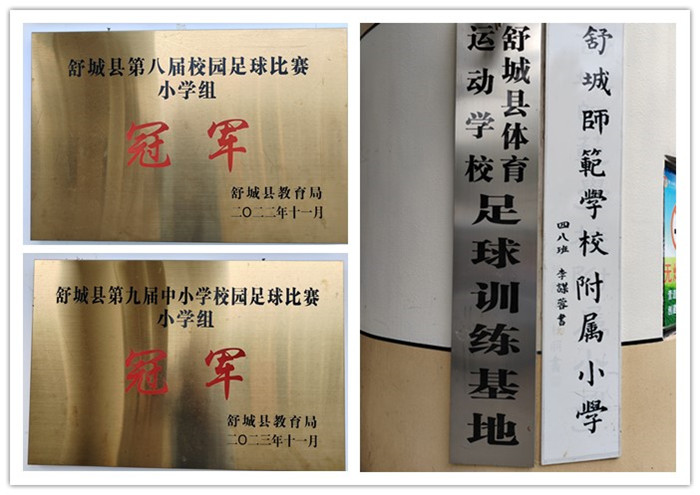 舒城县第八届校园足球比赛
小学组
冠军
舒城县教育局
二〇二二年十一月
舒城县第九届中小学校园足球比赛
小学组
冠军
舒城县教育局
二〇二三年十一月
舒城县体育
运动学校
足球训练基地
舒城師範學校附属小學
四八班 李謀蓉書